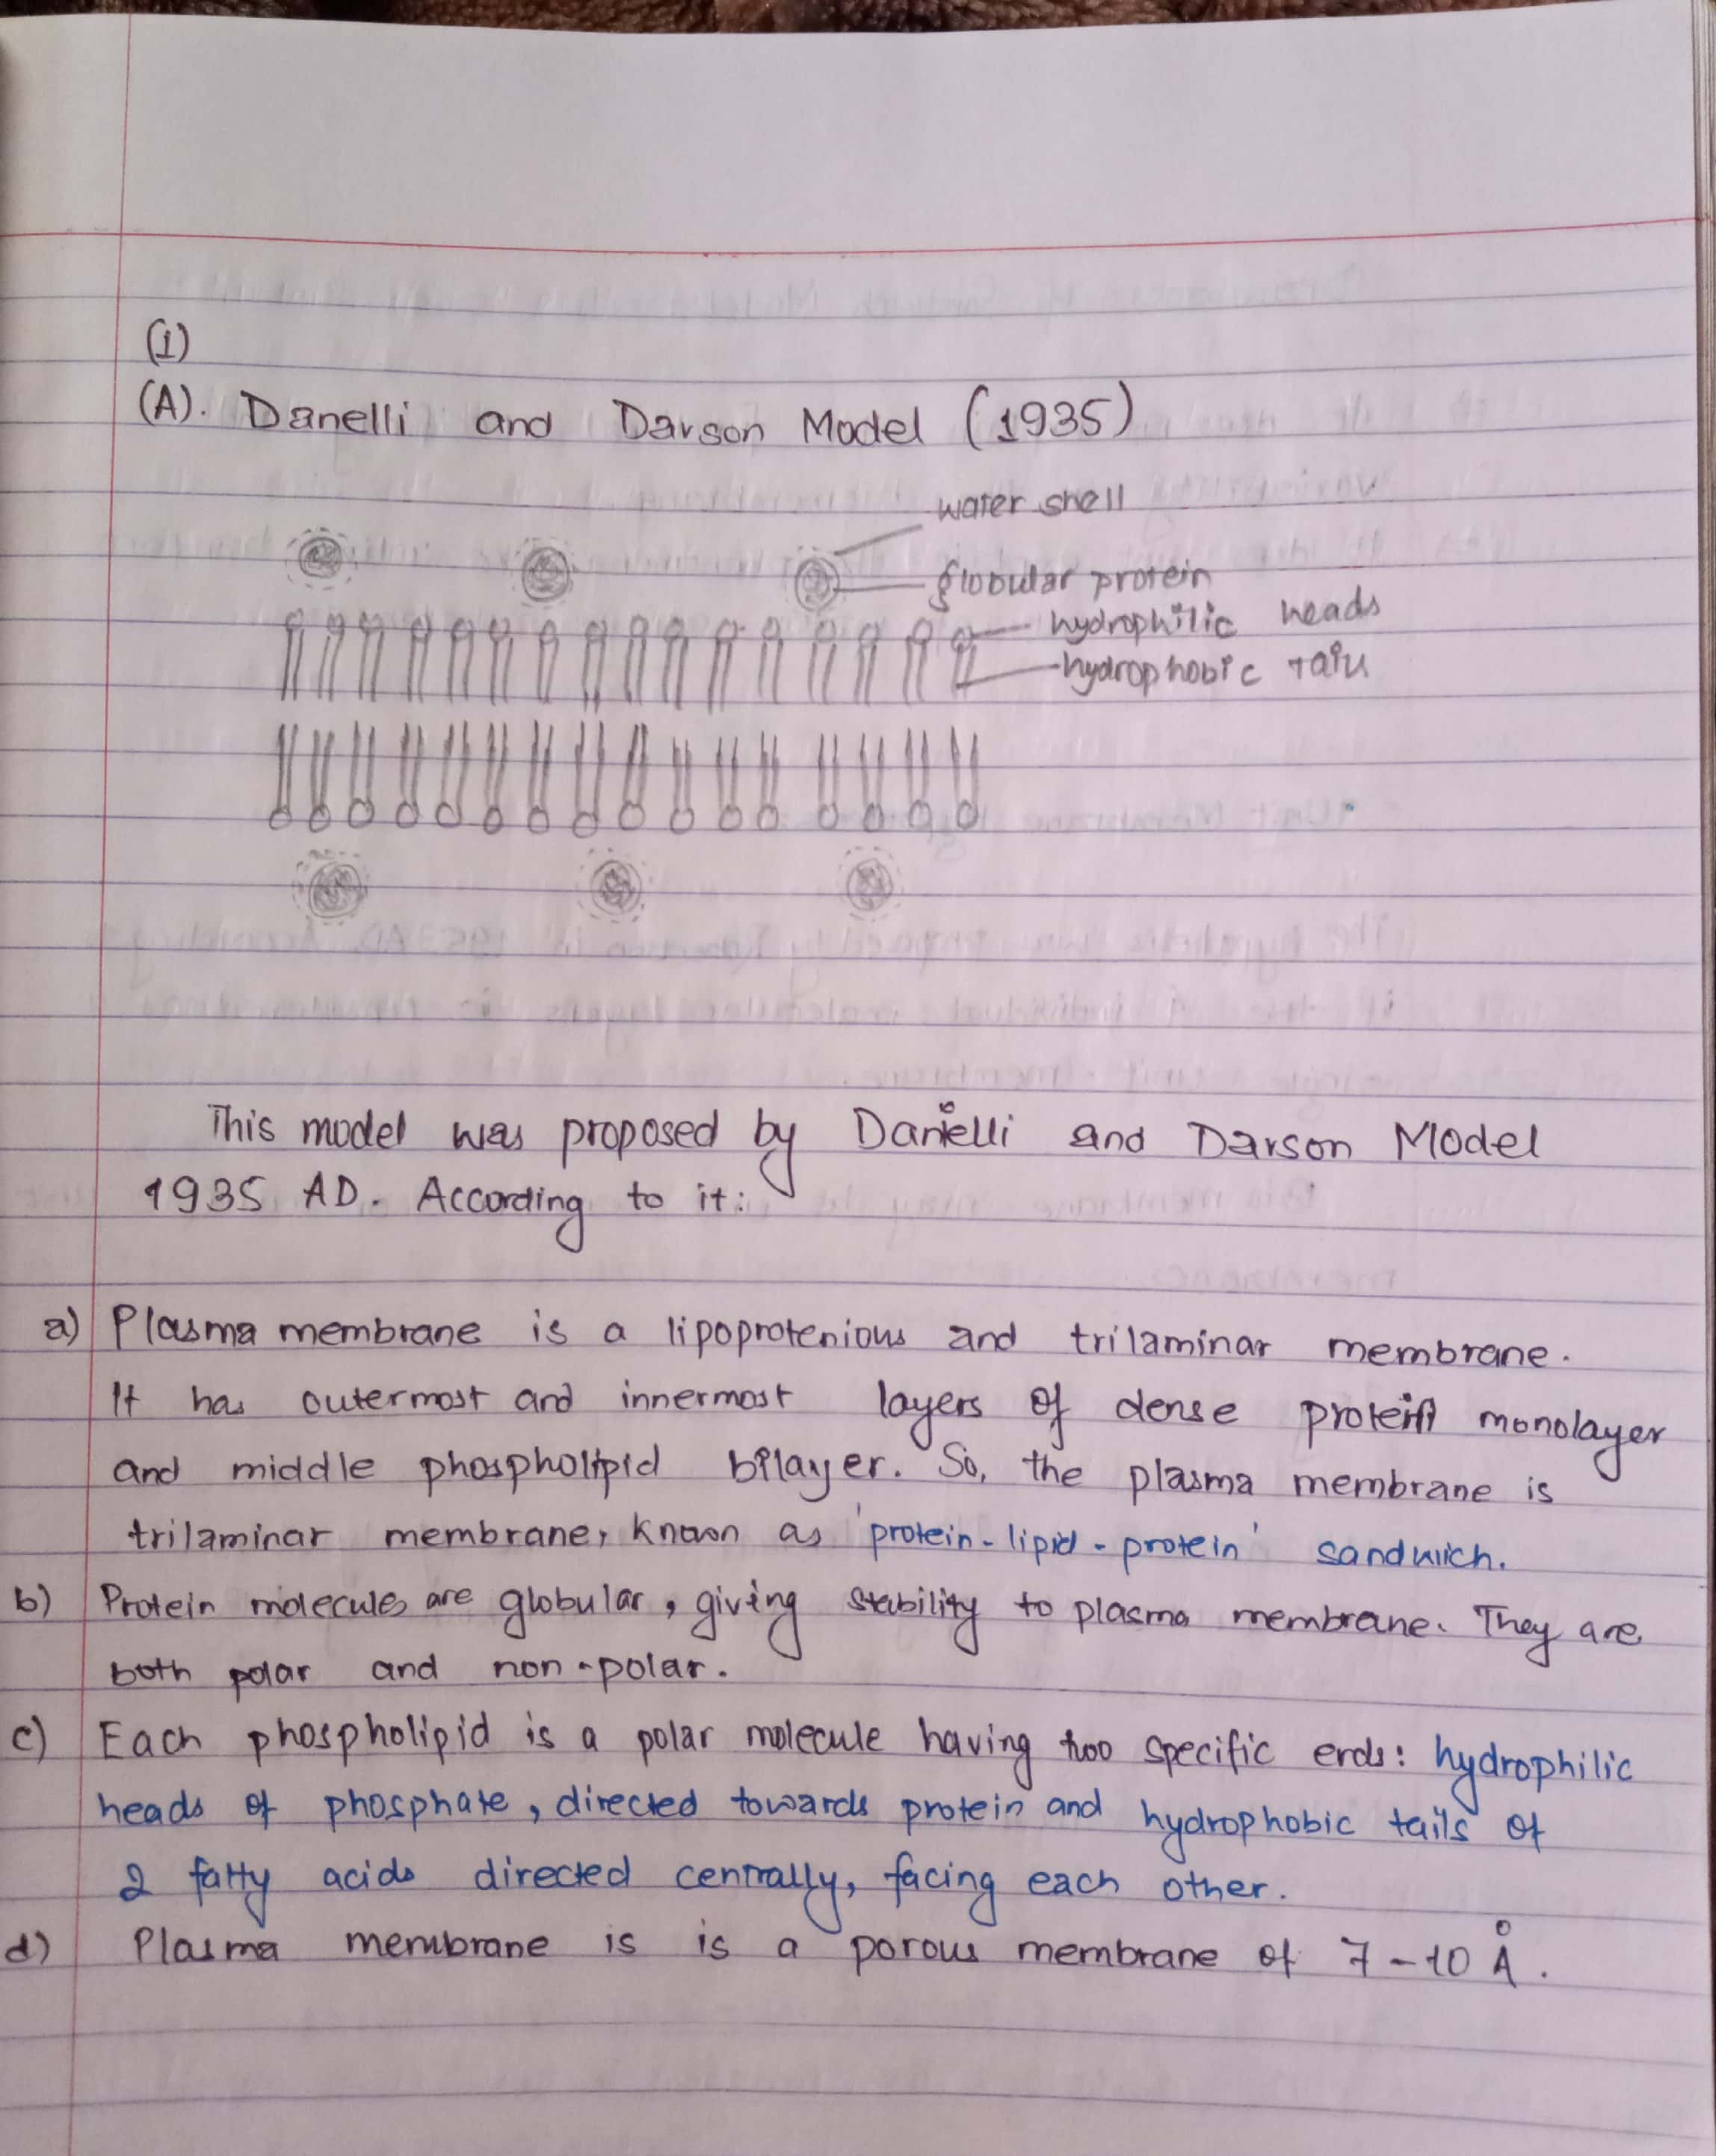 (1)
(A). Danelli and Davson Model (1935)
water shell
globular protein
hydrophilic heads
hydrophobic tail
This model was proposed by Danielli and Davson Model
1935 AD. According to it:
a) Plasma membrane is a lipoprotenious and trilaminar membrane.
It has outermost and innermost layers of dense protein monolayer
and middle phospholipid bilayer. So, the plasma membrane is
trilaminar membrane, known as 'protein-lipid-protein' sandwich.
b) Protein molecules are globular, giving stability to plasma membrane. They are
both polar and non-polar.
c) Each phospholipid is a polar molecule having two specific ends: hydrophilic
heads of phosphate, directed towards protein and hydrophobic tails of
2 fatty acids directed centrally, facing each other.
d) Plasma membrane is is a porous membrane of 7-10 Å.